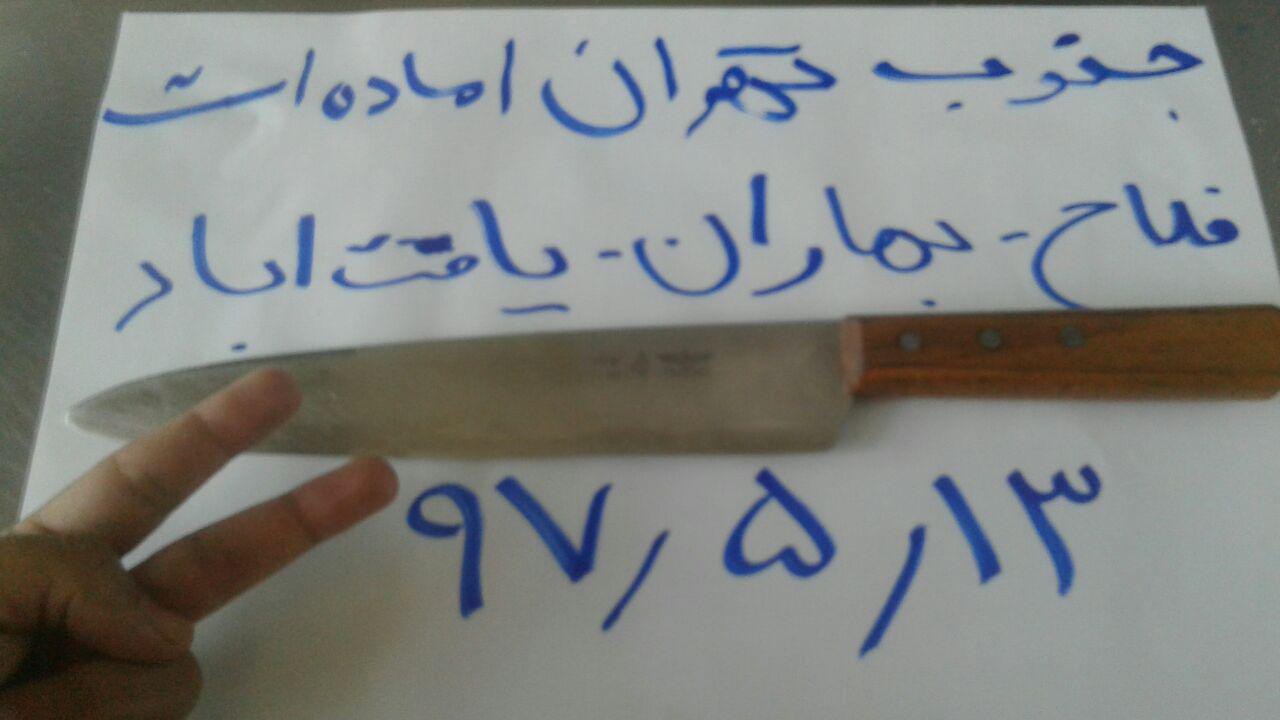 جنوب تهران اماده ات
فلاح - بهاران - یافت اباد
۹۷/۵/۱۳